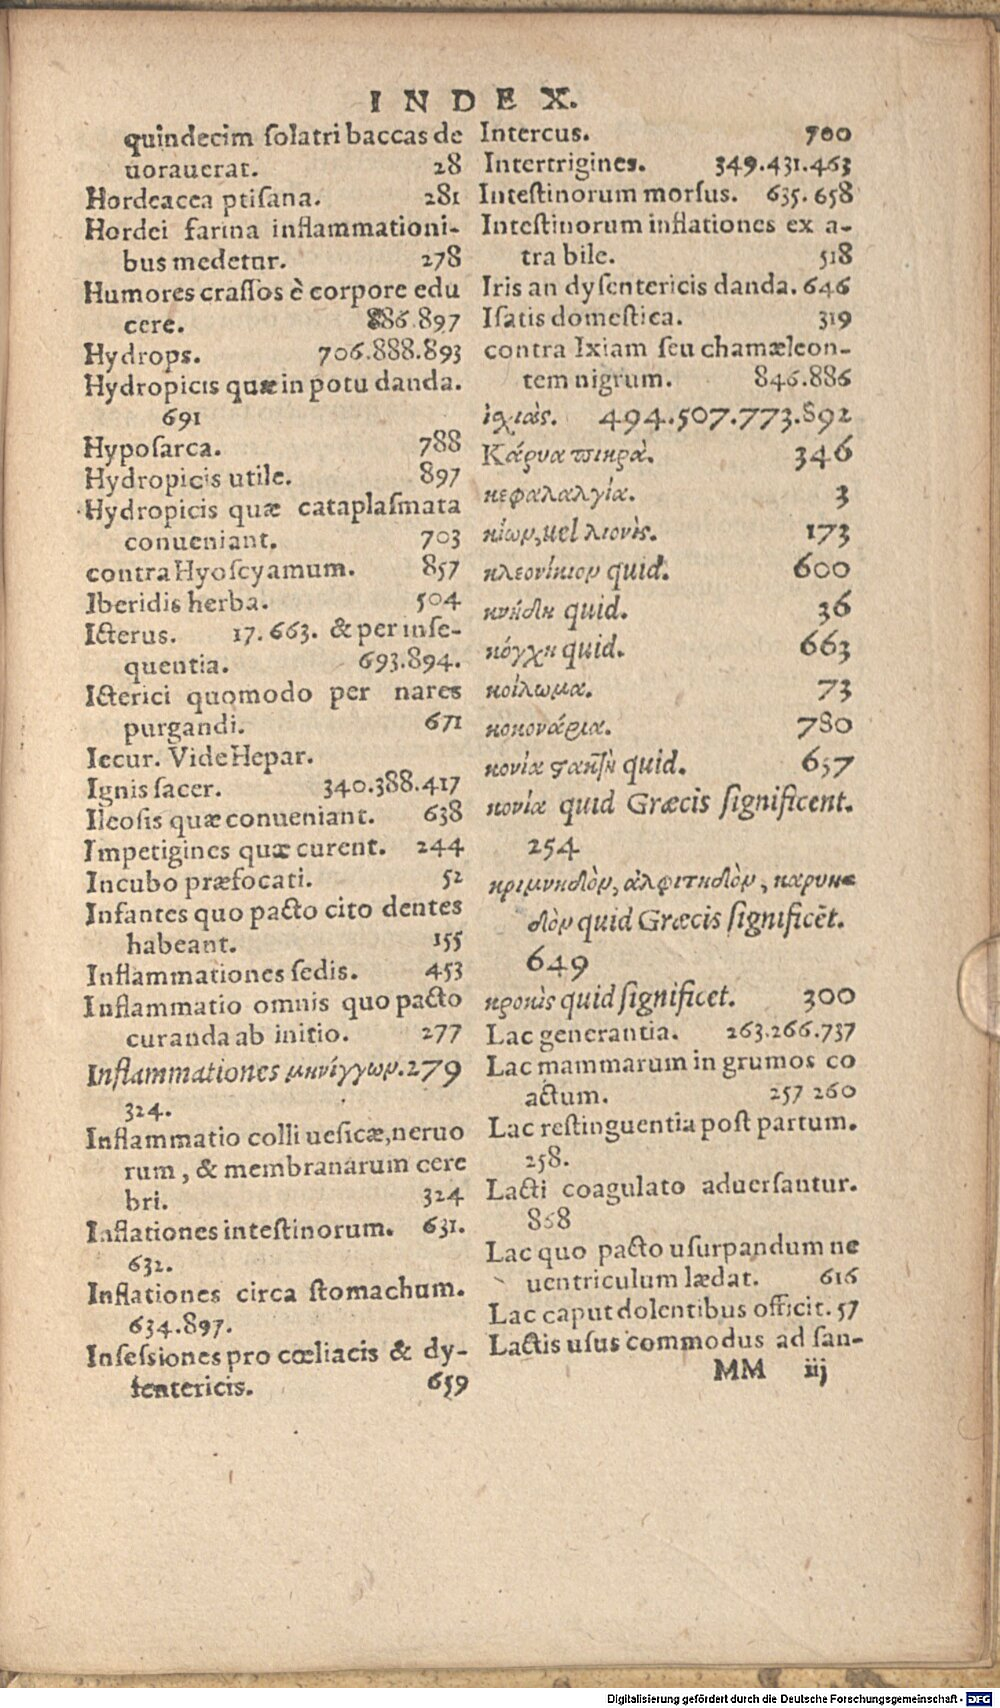 INDEX.
quindecim ſolatri baccas de
uorauerat. 28
Hordeacea ptiſana. 281
Hordei farina inflammationi-
bus medetur. 278
Humores craſſos è corpore edu
cere. 886.897
Hydrops. 706.888.893
Hydropicis quæ in potu danda.
691
Hypoſarca. 788
Hydropicis utile. 897
Hydropicis quæ cataplaſmata
conueniant. 703
contra Hyoſcyamum. 857
Iberidis herba. 504
Icterus. 17.663. & per inſe-
quentia. 693.894.
Icterici quomodo per nares
purgandi. 671
Iecur. Vide Hepar.
Ignis ſacer. 340.388.417
Ileoſis quæ conueniant. 638
Impetigines quæ curent. 244
Incubo præfocati. 52
Infantes quo pacto cito dentes
habeant. 155
Inflammationes ſedis. 453
Inflammatio omnis quo pacto
curanda ab initio. 277
Inflammationes μηνίγγων. 279
324.
Inflammatio colli ueſicæ, neruo
rum, & membranarum cere
bri. 324
Inflationes inteſtinorum. 631.
632.
Inflationes circa ſtomachum.
634.897.
Inſeſsiones pro cœliacis & dy-
ſentericis. 659
Intercus. 700
Intertrigines. 349.431.463
Inteſtinorum morſus. 635.658
Inteſtinorum inflationes ex a-
tra bile. 518
Iris an dyſentericis danda. 646
Iſatis domeſtica. 319
contra Ixiam ſeu chamæleon-
tem nigrum. 846.886
ἰσχιὰς. 494.507.773.892
Κάρυα πικρὰ. 346
κεφαλαλγία. 3
κίων, uel κιονὶς. 173
κλεονίκιον quid. 600
κνήδη quid. 36
κόγχη quid. 663
κοίλωμα. 73
κοκονάρια. 780
κονία quid. 657
κονία quid Græcis ſignificent.
254
κριμνηδὸν, ἀλφιτηδὸν, καρυη-
δὸν quid Græcis ſignificēt.
649
κροκὶς quid ſignificet. 300
Lac generantia. 263.266.737
Lac mammarum in grumos co
actum. 257 260
Lac reſtinguentia poſt partum.
258.
Lacti coagulato aduerſantur.
868
Lac quo pacto uſurpandum ne
uentriculum lædat. 616
Lac caput dolentibus officit. 57
Lactis uſus commodus ad ſan-
MM iij
Digitalisierung gefördert durch die Deutsche Forschungsgemeinschaft - DFG